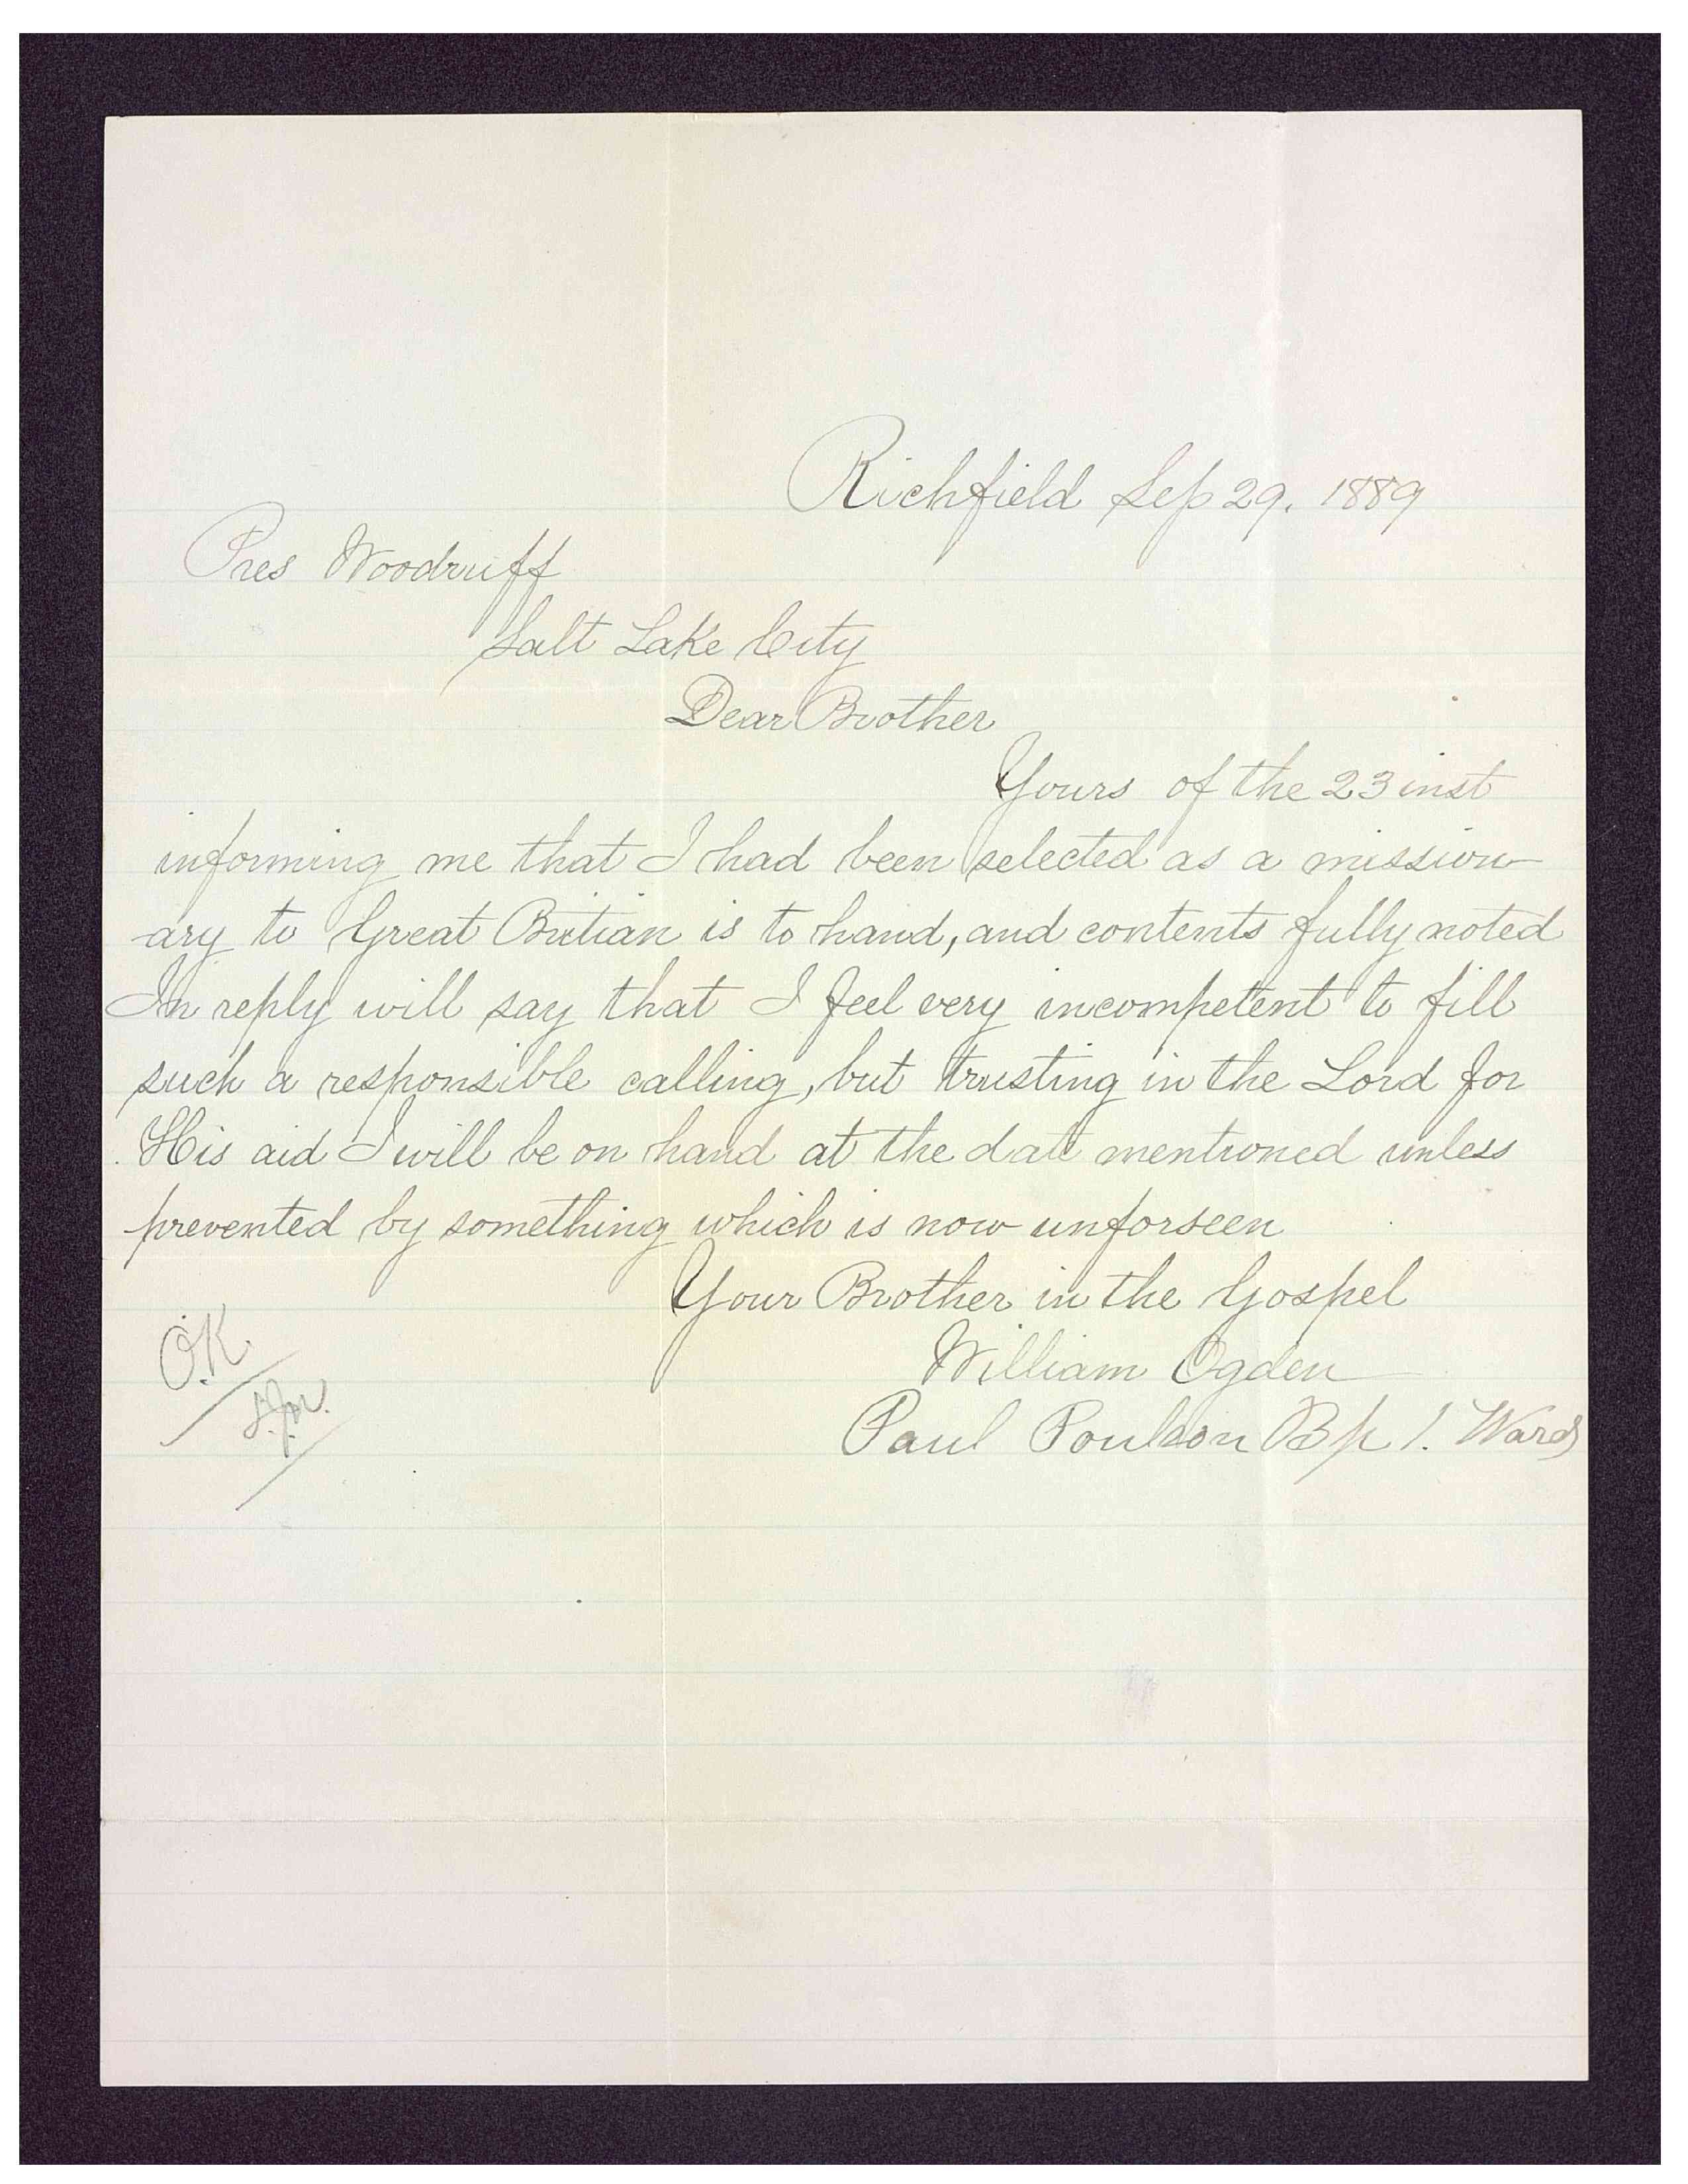 Richfield Sep 29. 1889
Pres Woodruff
Salt Lake City
Dear Brother
Yours of the 23 inst
informing me that I had been selected as a mission
ary to Great Britian is to hand, and contents fully noted
In reply will say that I feel very incompetent to fill
such a responsible calling, but trusting in the Lord for
His aid I will be on hand at the date mentioned unless
prevented by something which is now unforseen
Your Brother in the Gospel
William Ogden
Paul Poulson Bp 1. Ward
O.K.